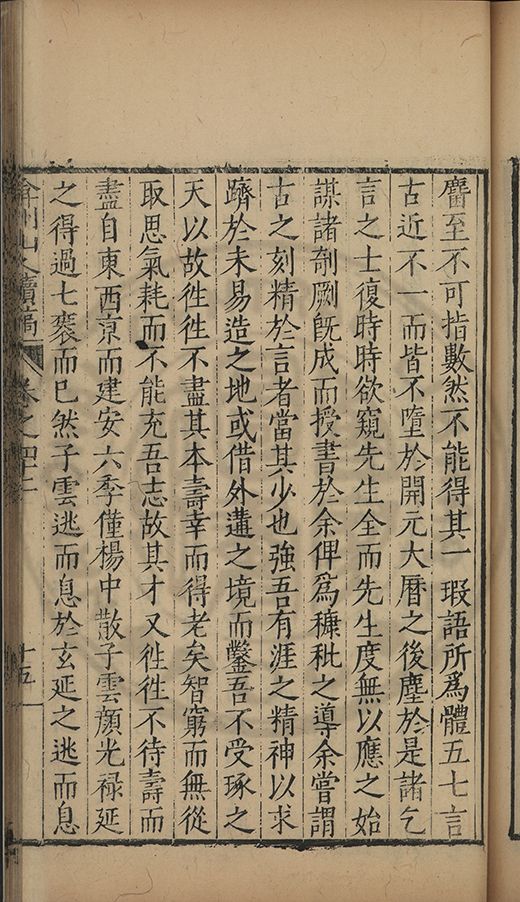 麕至不可指數然不能得其一瑕語所爲體五七言
古近不一而皆不墮於開元大曆之後塵於是諸乞
言之士復時時欲窺先生全而先生度無以應之始
謀諸剞劂旣成而授書於余俾爲穅粃之導余嘗謂
古之刻精於言者當其少也強吾有涯之精神以求
躋於未易造之地或借外遘之境而鑿吾不受琢之
天以故徃徃不盡其本壽幸而得老矣智窮而無從
取思氣耗而不能充吾志故其才又徃徃不待壽而
盡自東西京而建安六季僅楊中散子雲顔光禄延
之得過七袠而已然子雲逃而息於玄延之逃而息
弇州山人續稿 卷之四十二 十五